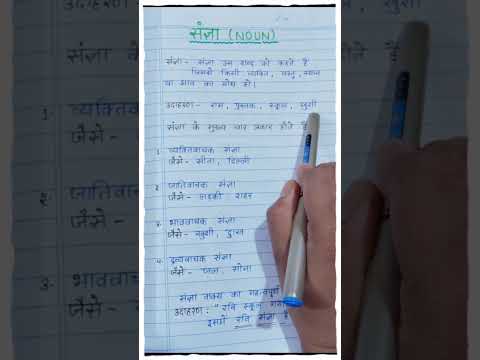 संज्ञा (NOUN)
संज्ञा - संज्ञा उस शब्द को कहते हैं
जिससे किसी व्यक्ति, वस्तु, स्थान
या भाव का बोध हो।
उदाहरण - राम, पुस्तक, स्कूल, खुशी
संज्ञा के मुख्य चार प्रकार होते हैं
1. व्यक्तिवाचक संज्ञा
जैसे - सीता, दिल्ली
2. जातिवाचक संज्ञा
जैसे - लड़की शहर
3. भाववाचक संज्ञा
जैसे - खुशी, दुःख
4. द्रव्यवाचक संज्ञा
जैसे - जल, सोना
संज्ञा वाक्य का महत्वपूर्ण
उदाहरण : " रवि स्कूल गया
इसमें रवि संज्ञा है